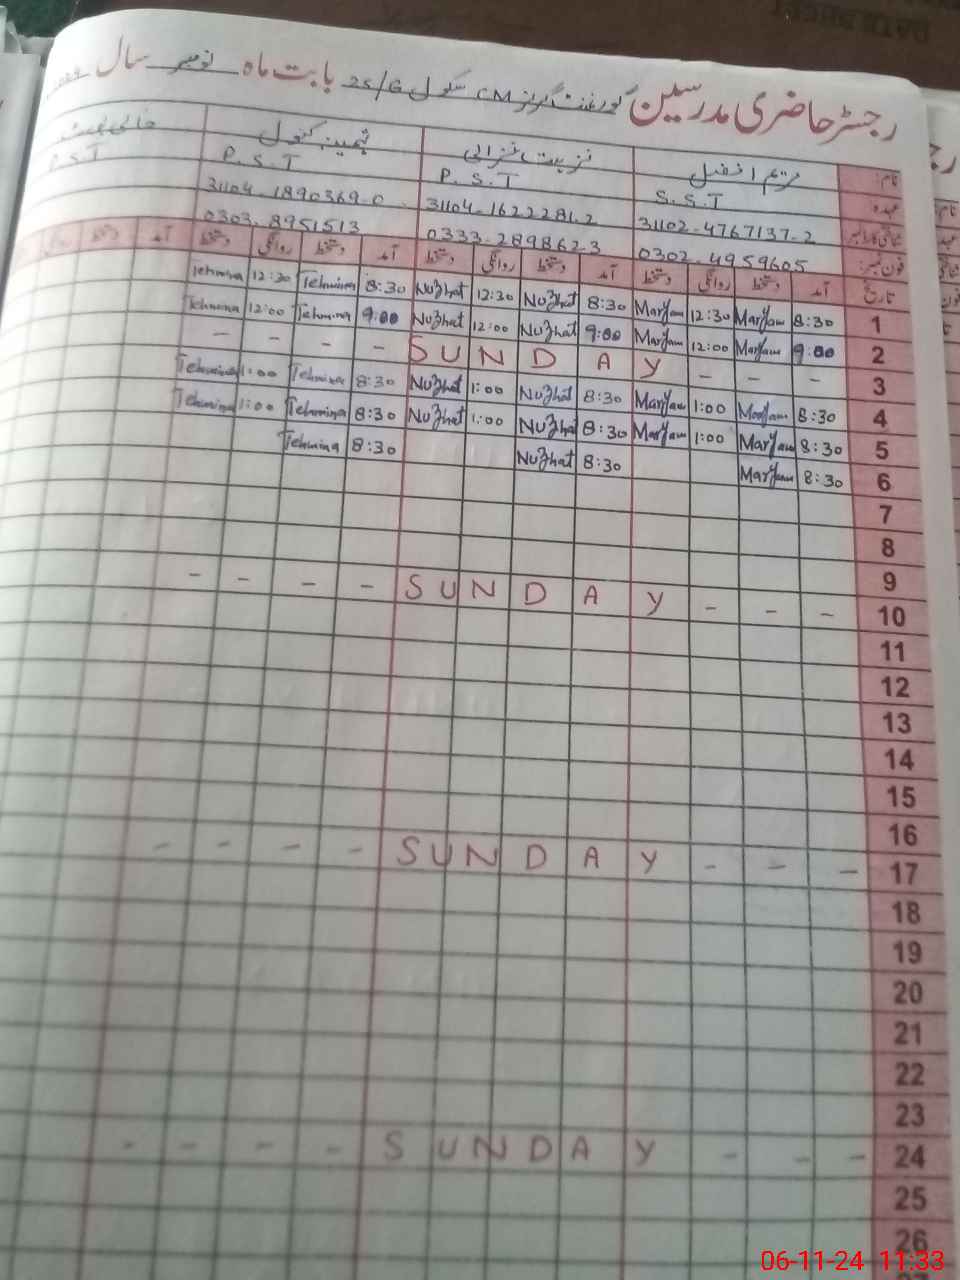 رجسٹر حاضری مدرسین گورنمنٹ گرلز CM سکول 25/G بابت ماہ نومبر سال
نام: مریم افضل نزہت غزالی ثمینہ کنول خالی پوسٹ
عہدہ: S.S.T P.S.T P.S.T P.S.T
31102-4767137-2 31104-1622281-2 31104-1890369-0
فون نمبر: 0302-4959605 0333-2898623 0303-8951513
تاریخ آمد دستخط روانگی دستخط آمد دستخط روانگی دستخط آمد دستخط روانگی دستخط آمد دستخط روانگی
1 8:30 Maryam 12:30 Maryam 8:30 Nuzhat 12:30 Nuzhat 8:30 Tehmina 12:30 Tehmina
2 9:00 Maryam 12:00 Maryam 9:00 Nuzhat 12:00 Nuzhat 9:00 Tehmina 12:00 Tehmina
3 - - - SUNDAY - - - -
4 8:30 Maryam 1:00 Maryam 8:30 Nuzhat 1:00 Nuzhat 8:30 Tehmina 1:00 Tehmina
5 8:30 Maryam 1:00 Maryam 8:30 Nuzhat 1:00 Nuzhat 8:30 Tehmina 1:00 Tehmina
6 8:30 Maryam 8:30 Nuzhat 8:30 Tehmina
7
8
9
10 - - - SUNDAY - - - -
11
12
13
14
15
16
17 - - - SUNDAY - - - -
18
19
20
21
22
23
24 - - - SUNDAY - - - -
25
26
06-11-24 11:33